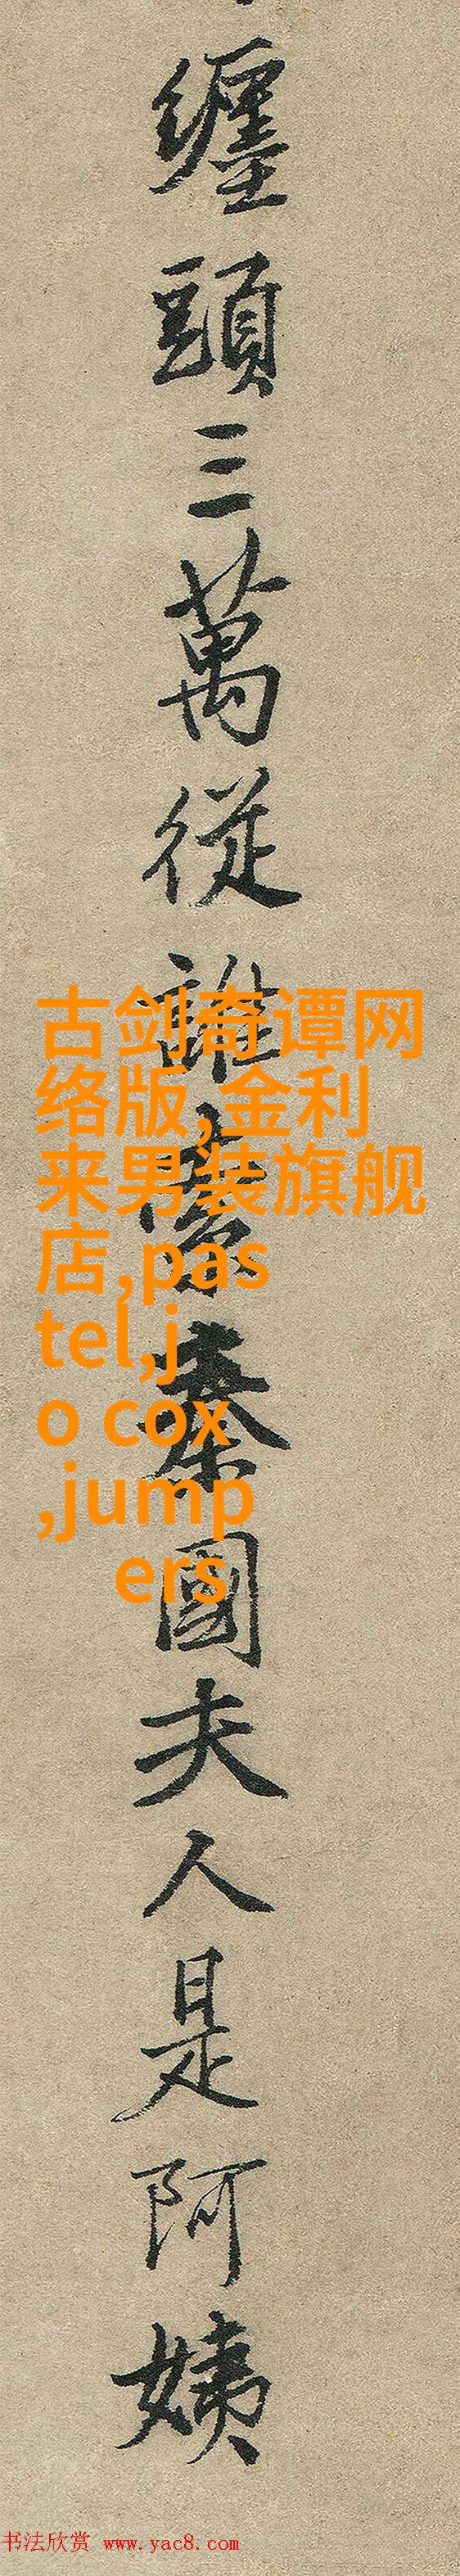 纏頭三萬從誰索秦國夫人是阿姨
古剑奇谭网
络版,金利
来男装旗舰
店,pas
tel,j
o cox
,jump
ers
书法欣赏 www.yac8.com